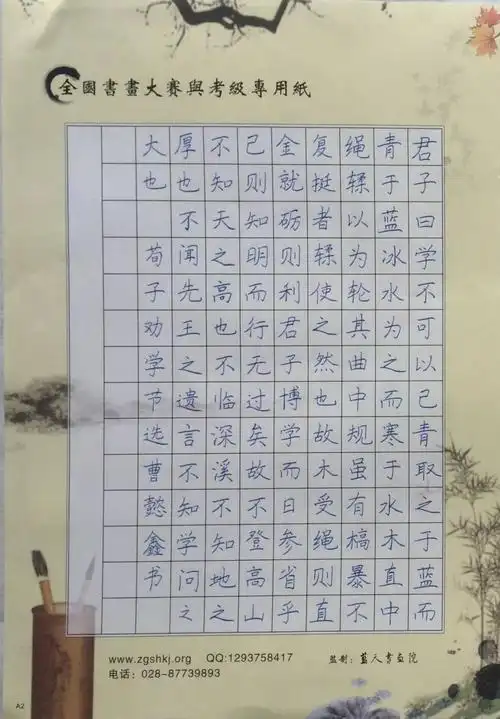 全国書畫大賽與考級專用紙
君子曰学不可以己青取之于蓝而
青于蓝冰水为之而寒于水木直中
绳𫐓以为轮其曲中规虽有槁暴不
复挺者𫐓使之然也故木受绳则直
金就砺则利君子博学而日参省乎
己则知明而行无过矣故不登高山
不知天之高也不临深溪不知地之
厚也不闻先王之遗言不知学问之
大也 荀子劝学节选曹懿鑫书
www.zgshkj.org QQ:1293758417 监制：蓝天书画院
电话：028-87739893
A2